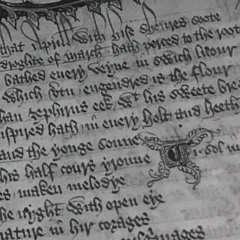 that Aprill with his shoures soote
droghte of march hath perced to the root
bathed euery veyne in swich licour
which vtu engendred is the flour
han zephirus eek wt his sweete bre
nspired hath in euery holt and heeth
and the yonge sonne
his half cours yronne
es maken melodye
he nyght with open eye
nature in hir corages